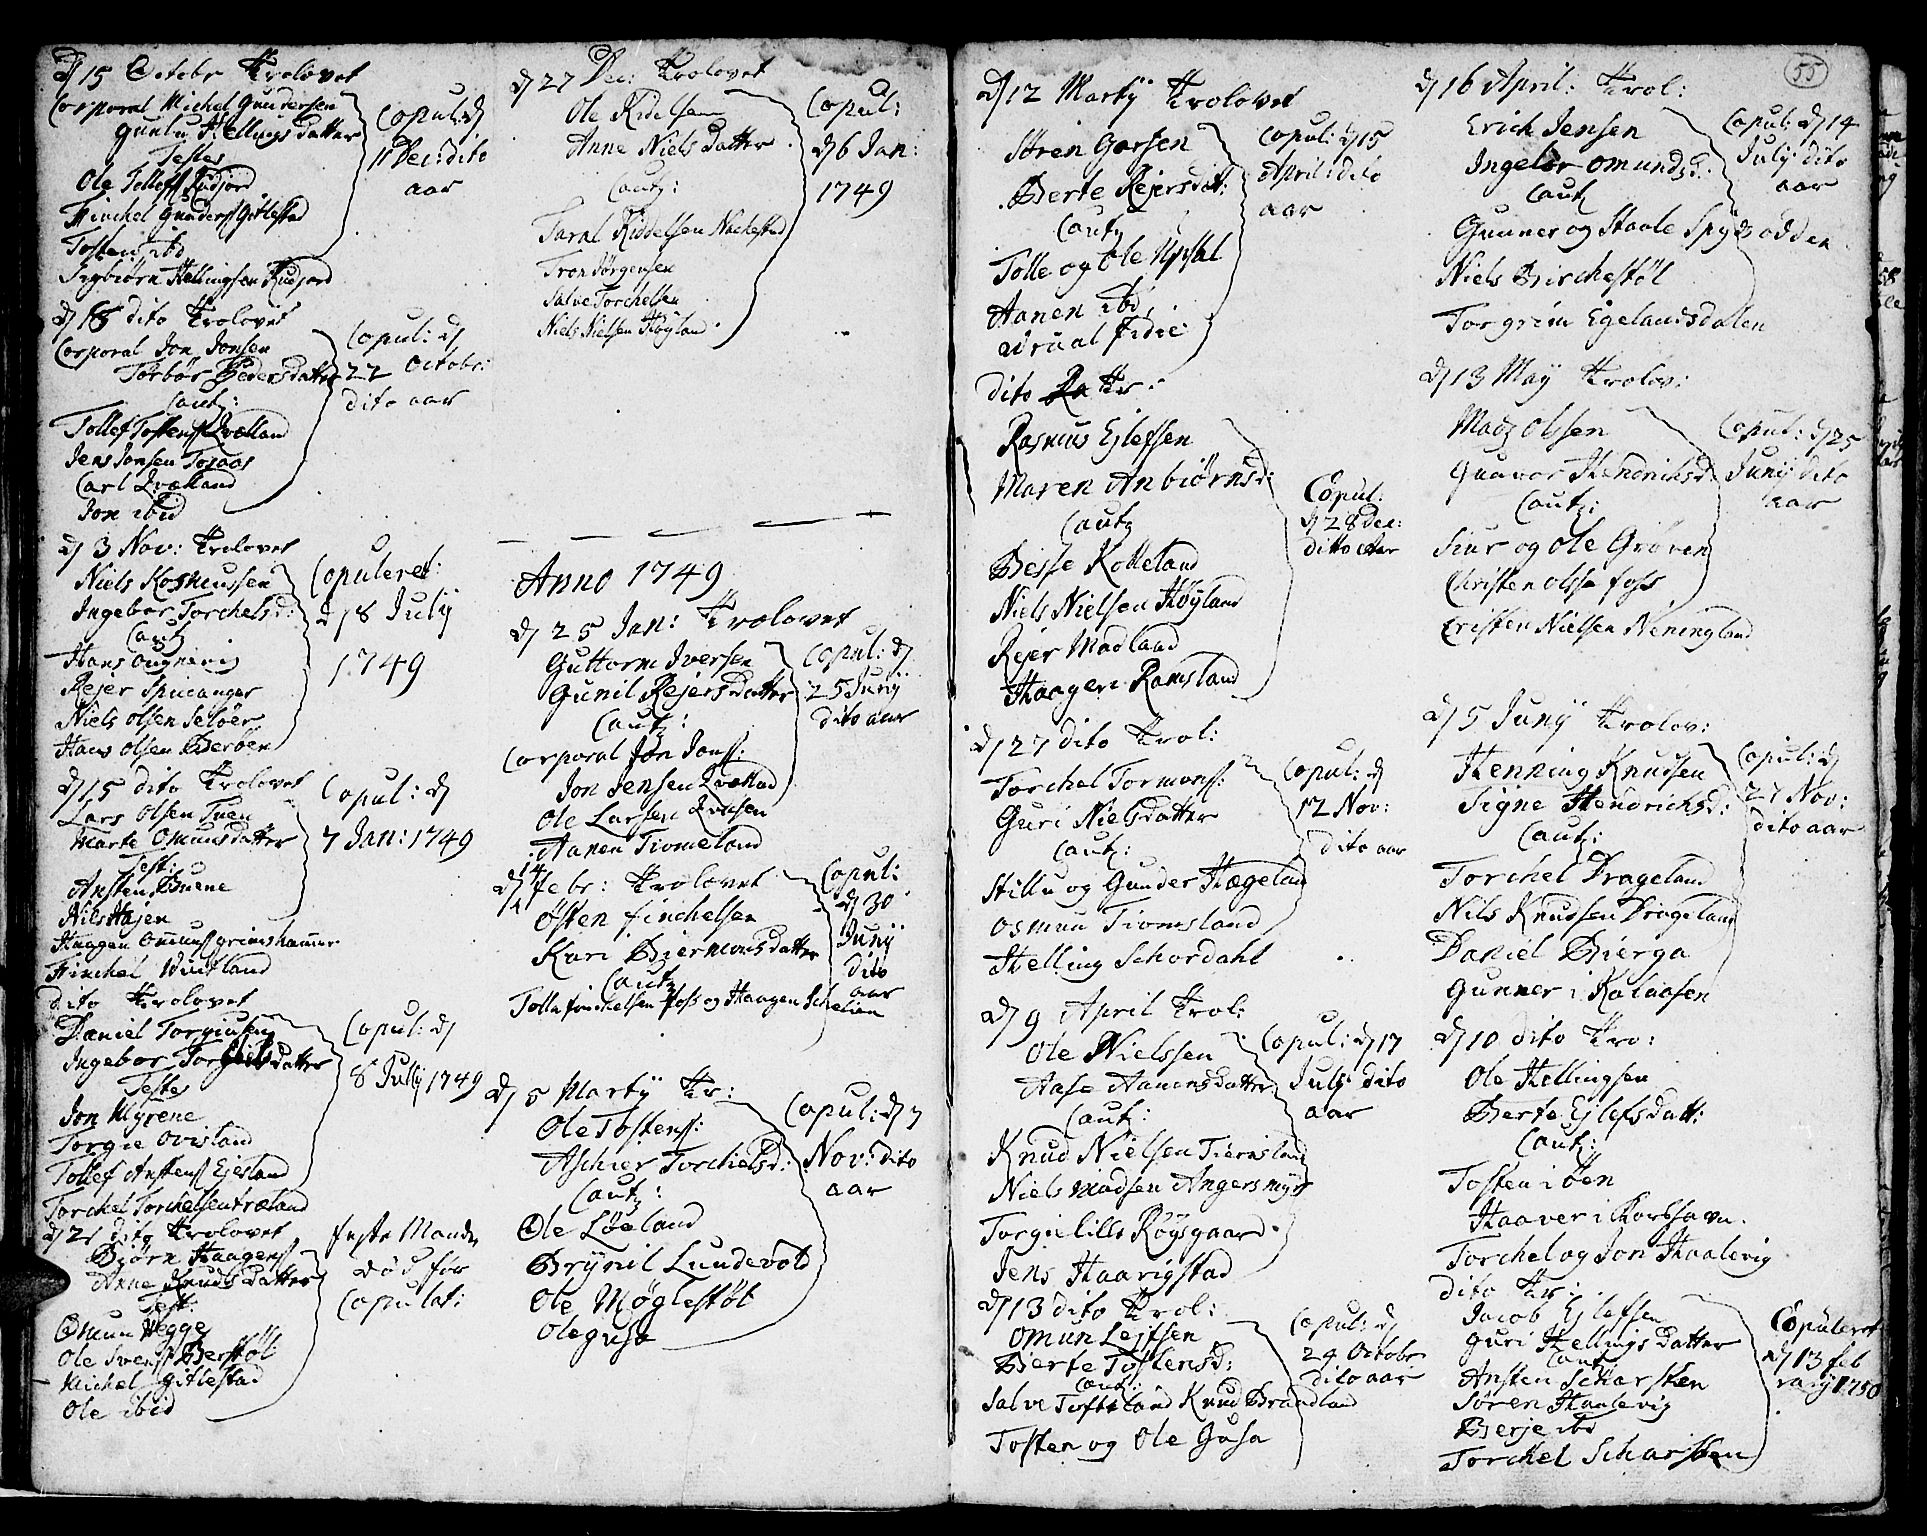 d 15 Octobr Trolovet
Corporal Michel Gundersen
Gunlu Hellings datter
Testes
Ole Tollefs Rudjord
Finchel Gunders Gitlestad
Tosten ibd
Sigbiørn Hellingsen Rudjord
Copul: d
11 Dec: dito
aar
d 18 dito Trolovet
Corporal Jon Jonsen
Torbør Peders datter
Caut:
Tollef Tostens Qvælland
Jens Jonsen
Carl Qvælland
Jon ibid
Copul: d
22 Octobr:
dito aar
d 3 Nov: Trolovet
Niels Rosmussen
Ingebor Torchelsd:
Caut
Hans
Rejer Spiceanger
Niels Olsen Seløer
Hans Olsen Berøen
Copuleret:
d 8 Julij
1749
d 15 dito Trolovet
Lars Olsen Tuen
Marte Omunsdatter
Test:
Ansten Buene
Nils Højen
Haagen Omuns grimshamer
Finchel Windland
Copul: d
7 Jan: 1749
dito Trolovet
Daniel Torgiusen
Ingebor datter
Testes
Jon Myrene
Torgie Ovisland
Tollef Anstens Ejesland
Torchel Torchelsen træland
Copul: d
8 Julij 1749
d 21 dito Trolovet
Biørn Haagens
Anne Knuds datter
Test:
Omun Hegge
Ole Svens Berstøl
Michel Gitlestad
Ole ibid
feste Manden
død før
Copulat:
d 27 Dec: Trolovet
Ole Ridelsen
Anne Niels datter
Caut:
Taral Riddelsen Nachestad
Tron Jørgensen
Salve Torchelsen
Niels Nielsen Høyland
Copul:
d 6 Jan:
1749
Anno 1749
d 25 Jan: Trolovet
Guttorm Iversen
Gunil Rejers datter
Caut:
Corporal Jon Jons:
Jon Jensen Qvælland
Ole Larsen
Aanen Tiomeland
Copul: d
25 Junij
dito aar
d 14 Febr: Trolovet
Østen Finchelsen
Kari Biermonsdatter
Caut
Tolle Finchelsen Foss og Haagen
Copul:
d 30
Junij
dito
aar
d 5 Martij Tr:
Ole Tostens:
Aschier Torchelsd:
Caut:
Ole Løeland
Brynil Lundevold
Ole Møglestøl
Ole gusa
Copul: d 7
Nov: dito
aar
55
d 12 Martij Trolovet
Søren Garsen
Berte Rejersdat:
Caut
Tolle og Ole Upsal
Aanen ibd,
Fidie
Copul: d 15
April: dito
aar
dito Tr:
Rasmus Ejlefsen
Maren Anbiørnsd:
Caut
Besse Kolleland
Niels Nielsen Høyland
Rejer Madland
Haagen Ramsland
Copul:
d 28 Dec:
ditto Aar
d 27 dito Trol:
Torchel Tormons:
Guri Nielsdatter
Caut:
Stillu og Gunder Hægeland
Osmun Tiomsland
Helling Schordahl
Copul: d
12 Nov:
dito aar
d 9 April Trol:
Ole Nielssen
Aase Aanensdatter
Caut:
Knud Nielsen Tiomsland
Niels Madsen Angersmyr
Torgie lille Røysgaard
Jens Haarigstad
Copul: d 17
July: dito
aar
d 13 dito Trol:
Omun Lejfsen
Berte Tostensd:
Caut:
Salve Tofteland Knud Brandland
Tosten og Ole Gusa
Copul: d
24 Octobr
dito aar
d 16 April: Trol:
Erich Jensen
Ingebor Omundsd:
Caut
Gunner og Staale Spydsodden
Niels Birchestøl
Torgrim Egelandsdalen
Copul: d 14
July: dito
aar
d 13 May Trolov:
Madz Olssen
Gunvor Hendrichsd:
Caut:
Siur og Ole Grøven
Christen Olss foss
Cristen Nielsen Neningland
Copul: d 25
Junij dito
aar
d 5 Junij Trolov:
Henning Knudsen
Signe Hendrichsd:
Caut:
Torchel Drageland
Nils Knudsen Drageland
Daniel Bierga
Gunner i Kalaasen
Copul: d
27 Nov:
dito aar
d 10 dito Tro:
Ole Hellingsen
Berte Ejlefsdatt:
Caut:
Tosten i Øen
Haaver i
Torchel og Jon Haalevig
dito Tr:
Jacob Ejlefsen
Guri Hellings datter
Caut
Ansten Scharsten
Søren Haalevig
Berje ibd
Torchel Scharsten
Copuleret
d 13 feb
rarij 1750